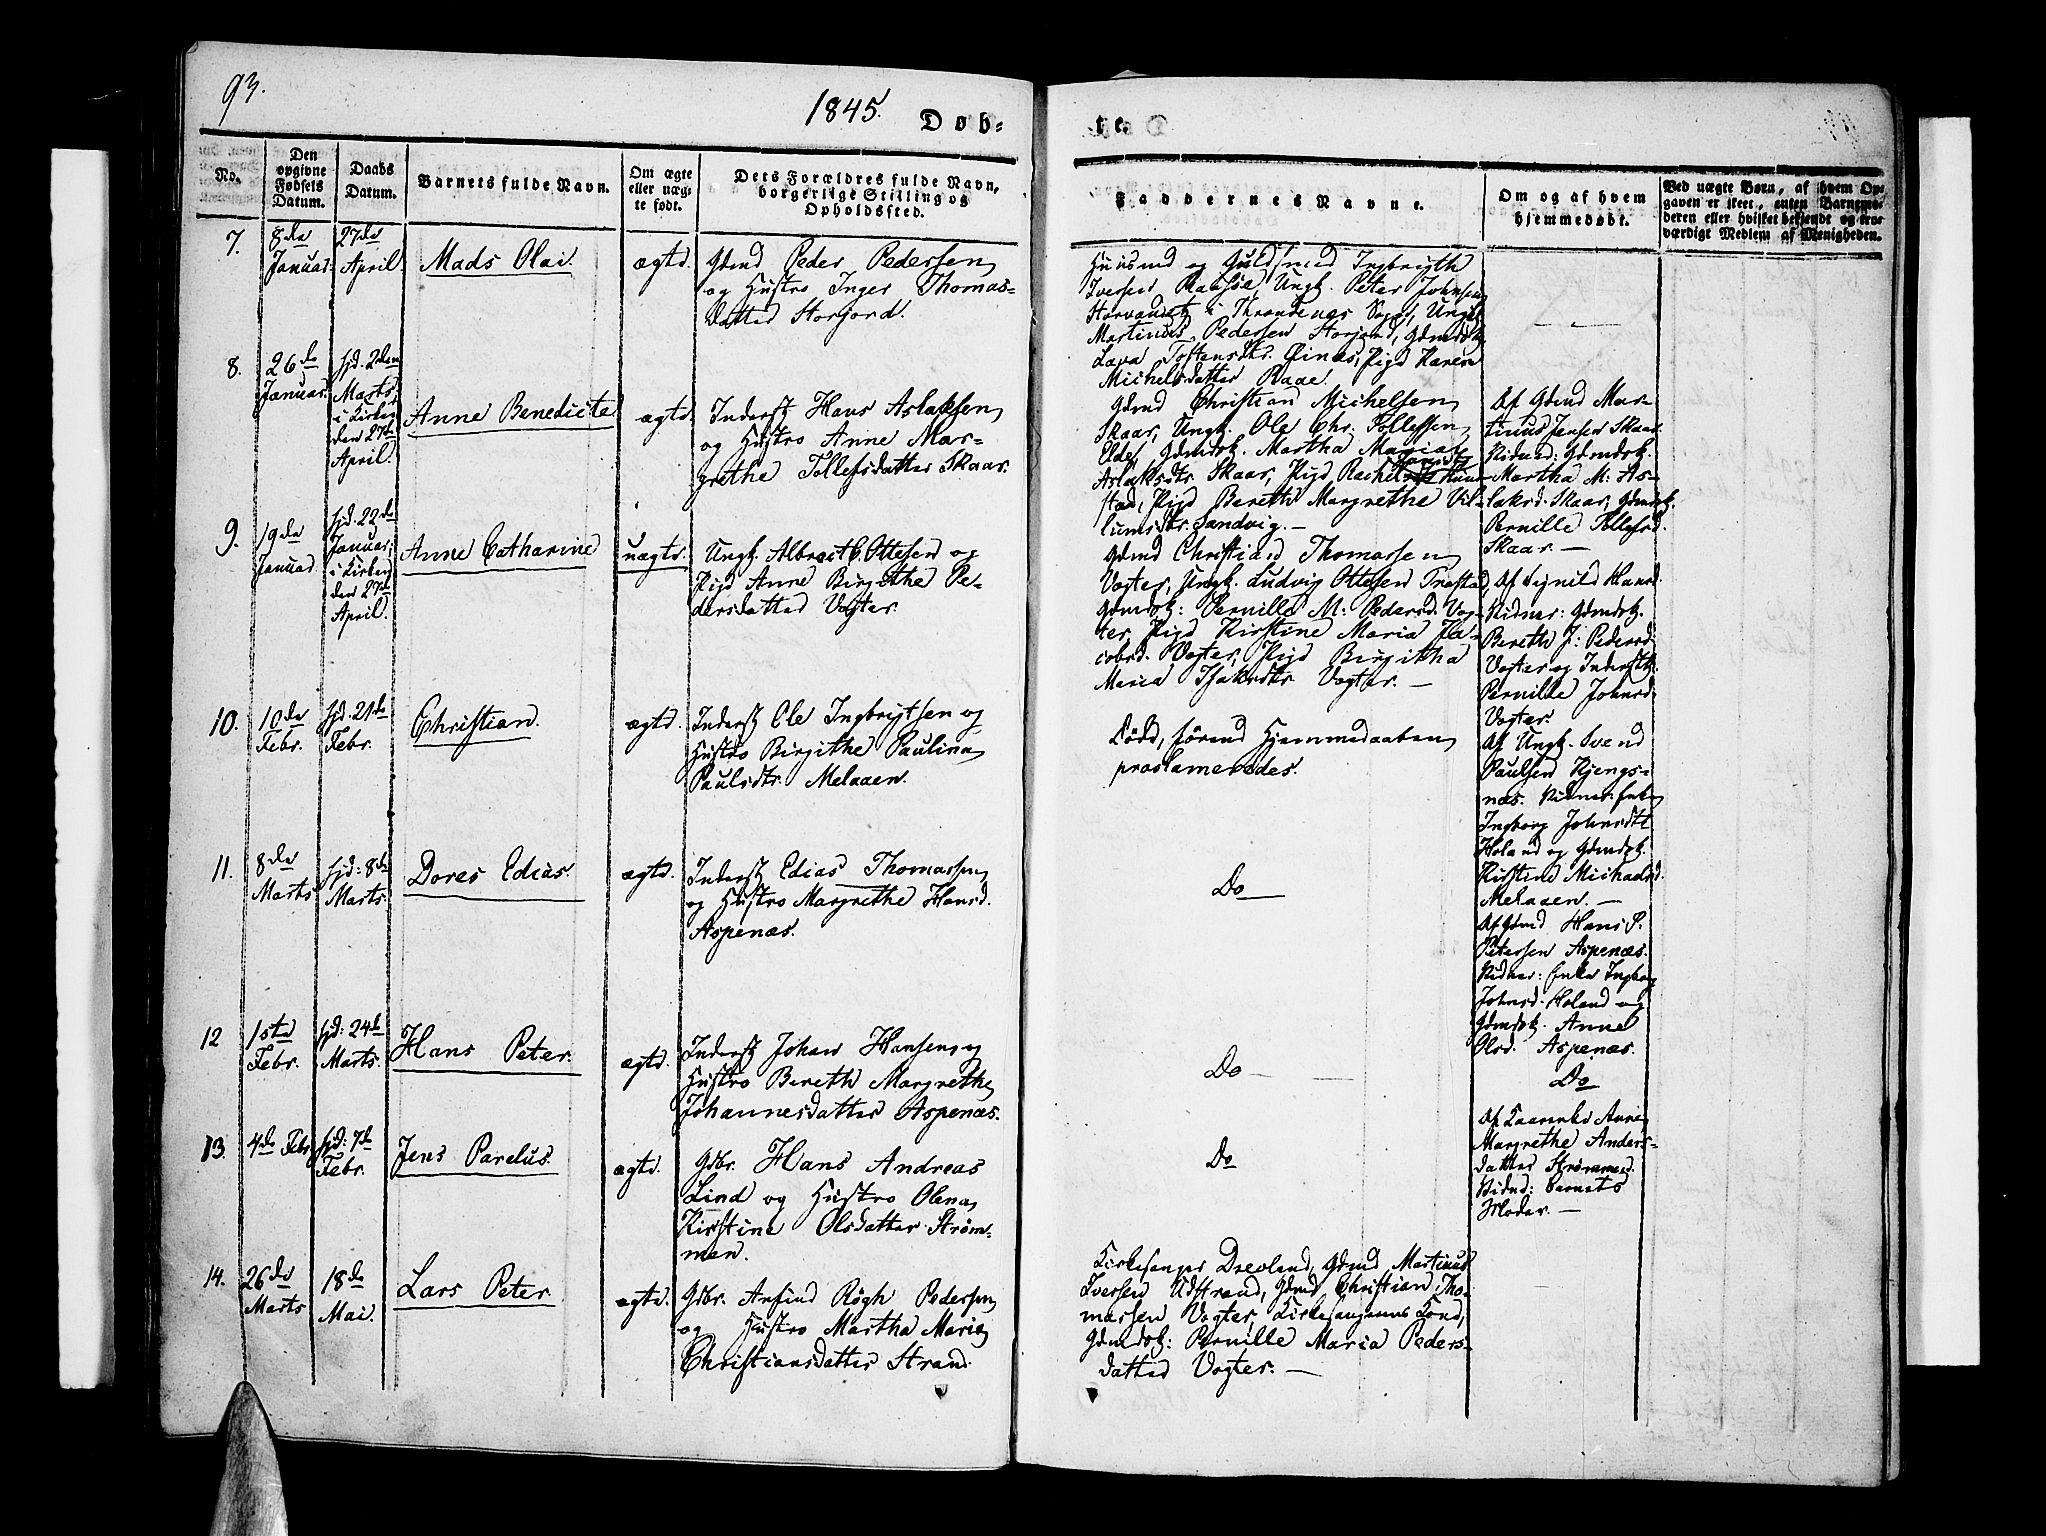 93.
1845.
Døb-
te.
No.
Den opgivne Fødsels Datum.
Daabs Datum.
Barnets fulde Navn.
Om ægte eller uægte født.
Dets Forældres fulde Navn, borgerlige Stilling og Opholdssted.
Faddernes Navne.
Om og af hvem hjemmedøbt.
Ved uægte Børn, af hvem Opgaven er skeet, enten Barnemoderen eller hvilket bekjendt og troværdigt Medlem af Menigheden.
7.
8de
Januar.
27de
April.
Mads Olai.
ægte.
Gdmd Peder Pedersen
og Hustro Inger Thomas-
datter Storjord.
Huusmd og Guldsmed Ingbrigth
Iversen Ramsøe, Ungk. Peter Johnsen
Storvandet i Throndenæs Sogn, Ungk.
Martinus Pedersen Storjord, Gdmdsk.
Lava Toftensdtr. Øinæs, Pigd Karen
Michelsdatter Raae.
8.
26de
Januar.
hjd. 2den
Marts,
i Kirken
den 27de
April.
Anne Benedicte
ægte.
Inderst Hans Aslaksen
og Hustro Anne Mar-
grethe Tollefsdatter Skaar.
Gdmd Christian Michelsen
Skaar, Ungk. Ole Chr. Tollefsen
Elde, Gdmdsk. Martha Maria
Aslaksdtr Skaar, Pigd Rachel
stad, Pigd Bereth Margrethe Vil-
lumsdtr. Sandvig. —
Af Gdmd Mar-
tinus Jensen Skaar.
Vidner: Gdmdsk.
Martha M: As-
laksd. Skaar, Gdmdsk.
Pernille Tollefsd.
Skaar. —
9.
19de
Januar
hjd. 22de
Januar,
i Kirken
den 27de
April.
Anne Catharine
uægte.
Ungk. Albregt C. Ottesen og
Pigd Anne Birgithe Pe-
dersdatter Vogter.
Gdmd Christian Thomassen
Vogter, Ungk. Ludvig Ottesen Trostad,
Gdmdsk: Pernille M: Pedersd. Vog-
ter, Pigd Kirstine Maria Ja-
cobsd. Vogter, Pigd Birgitha
Maria Isaksdtr Vogter. —
Af Signild Hansd.
Vidner: Gdmdsk.
Bereth J: Pedersd.
Vogter og Inderstk.
Pernille Johnsd.
Vogter.
10.
10de
Febr.
hjd. 21de
Febr.
Christian.
ægte.
Inderst Ole Ingbrigtsen og
Hustro Birgithe Paulina
Paulsdtr. Melaaen.
Død, førend Hjemmedaaben
proclameredes.
Af Ungk. Svend
Paulsen Kjengs-
næs. Vidner: Enke
Ingborg Johnsdtr
Holand og Gdmdsk.
Kirstine Michaelsd.
Melaaen. —
11.
8de
Marts
hjd: 8de
Marts.
Dores Edias.
ægte.
Inderst Edias Thomassen
og Hustro Margrethe Hansd.
Aspenæs.
Do
Af Gdmd Hans P.
Petersen Aspenæs.
Vidner: Enke Ingborg
Johnsd. Holand og
Gdmdsk. Anne
Olsd. Aspenæs.
12
1ste
Febr.
hjd: 24de
Marts.
Hans Peter.
ægte.
Inderst Johan Hansen og
Hustro Bereth Margrethe
Johannesdatter Aspenæs.
Do
Do
13.
4de Febr.
hjd: 7de
Febr.
Jens Parelus.
ægte.
Gdbr. Hans Andreas
Lind og Hustro Olena
Kirstine Olsdatter Strøm-
men.
Do
Af Anne
Margrethe Anders-
datter Strømmen.
Vidne: Barnets
Moder. —
14.
26de
Marts
18de
Mai.
Lars Peter
ægte.
Gdbr. Arfind Røgh Pedersen
og Hustro Martha Maria
Christiansdatter Strand.
Kirkesanger Drevland, Gdmd Martinus
Iversen Udstrand, Gdmd Christian Tho-
massen Vogter, Kirkesangerens Kone,
Gdmdsk: Pernille Maria Peders-
datter Vogter. —